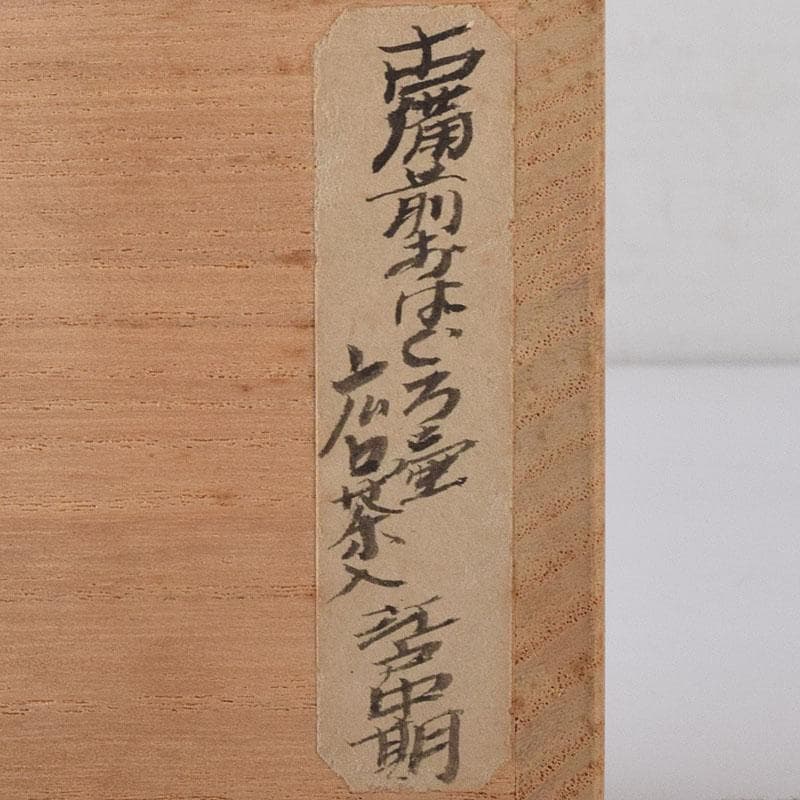 古備前おはぐろ壷
広口茶入
江戸中期